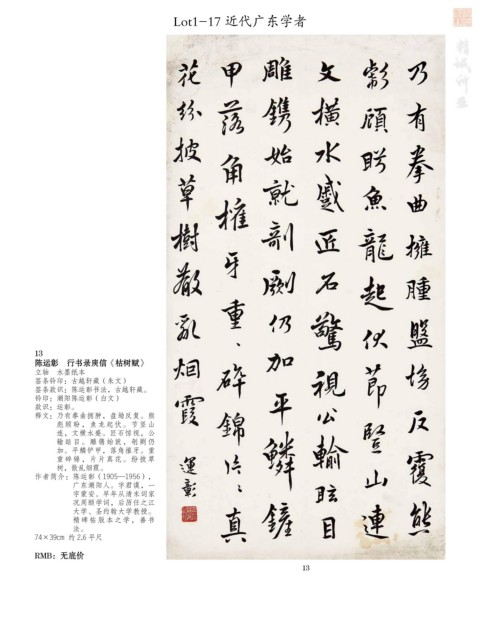 Lot1-17 近代广东学者
精诚所至
乃有拳曲擁腫盤坳反覆熊
彪顧盼魚龍起伏節豎山連
文橫水蹙匠石驚視公輸眩目
雕鐫始就剞劂仍加平鱗鏟
甲落角摧牙重、碎錦片、真
花紛披草樹散亂烟霞
運彰
13
陈运彰 行书录庾信《枯树赋》
立轴 水墨纸本
签条钤印：古越轩藏（朱文）
签条款识：陈运彰书法，古越轩藏。
钤印：潮阳陈运彰（白文）
款识：运彰。
释文：乃有拳曲拥肿，盘坳反复。熊
彪顾盼，鱼龙起伏。节竖山
连，文横水蹙。匠石惊视，公
输眩目。雕镌始就，剞劂仍
加。平鳞铲甲，落角摧牙。重
重碎锦，片片真花。纷披草
树，散乱烟霞。
作者简介：陈运彰（1905—1956），
广东潮阳人。字君谟，一
字蒙安。早年从清末词家
况周颐学词，后历任之江
大学、圣约翰大学教授。
精碑帖版本之学，善书
法。
74×39cm 约2.6平尺
RMB：无底价
13